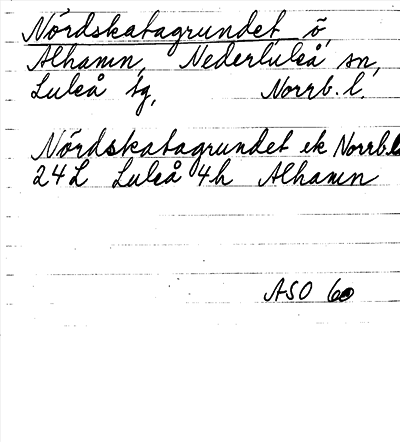 Nórdskatagrundet ö,
Alhamn, Nederluleå sn,
Luleå tg, Norrb. l.
Nórdskatagrundet ek Norrb.l
24L Luleå 4h Alhamn
ASO 60